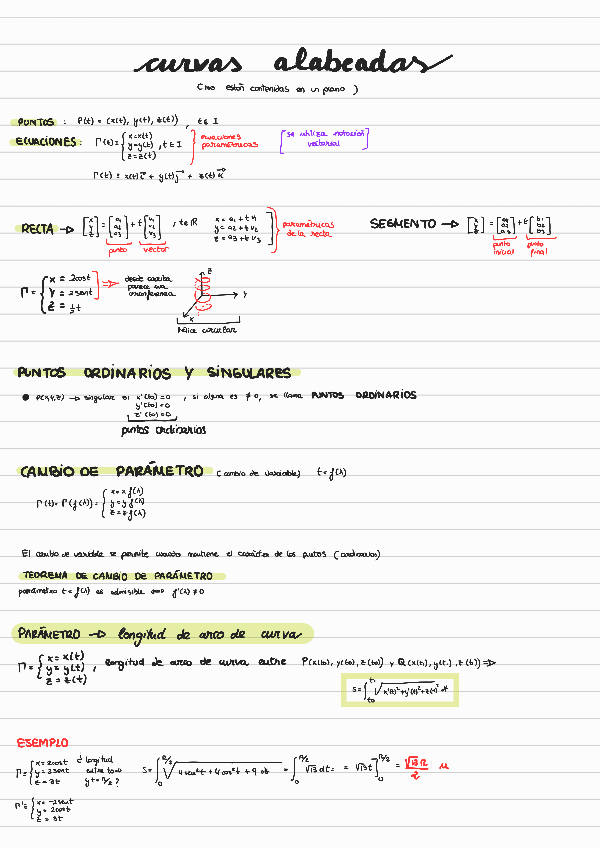 curvas alabeadas
(no están contenidas en un plano)
PUNTOS : P(t) = (x(t), y(t), z(t)) , t ∈ I
ECUACIONES: Γ(t) = { x=x(t) y=y(t) z=z(t) , t ∈ I ecuaciones paramétricas [se utiliza notación vectorial]
Γ(t) = x(t) i + y(t) j + z(t) k
RECTA → [x y z] = [a1 a2 a3] + t [v1 v2 v3] , t ∈ R x = a1 + t v1 y = a2 + t v2 z = a3 + t v3 paramétricas de la recta SEGMENTO → [x y z] = [a1 a2 a3] + t [b1 b2 b3]
punto vector punto inicial punto final
Γ = { x = 2cost y = 2sent z = 1/2 t ⇒ desde arriba parece una circunferencia z y x
hélice circular
PUNTOS ORDINARIOS Y SINGULARES
• P(x,y,z) → singular si x'(to) = 0 y'(to) = 0 z'(to) = 0 , si alguna es ≠ 0, se llama PUNTOS ORDINARIOS
puntos ordinarios
CAMBIO DE PARÁMETRO (cambio de variable) t = f(λ)
Γ(t) = Γ(f(λ)) = { x = x f(λ) y = y f(λ) z = z f(λ)
El cambio de variable se permite cuando mantiene el carácter de los puntos (ordinarios)
TEOREMA DE CAMBIO DE PARÁMETRO
parámetro t = f(λ) es admisible ⟺ f'(λ) ≠ 0
PARÁMETRO → longitud de arco de curva
Γ = { x = x(t) y = y(t) z = z(t) , longitud de arco de curva entre P(x(to), y(to), z(to)) y Q(x(t1), y(t1), z(t1)) ⇒
S = ∫ to t1 √ x'(t)² + y'(t)² + z'(t)² dt
EJEMPLO
Γ = { x = 2cost y = 2sent z = 3t ¿ longitud entre t=0 y t = π/2 ? S = ∫ 0 π/2 √ 4sen²t + 4cos²t + 9 dt = ∫ 0 π/2 √13 dt = √13 t ] 0 π/2 = √13 π / 2 u
Γ' = { x = -2sent y = 2cost z = 3t